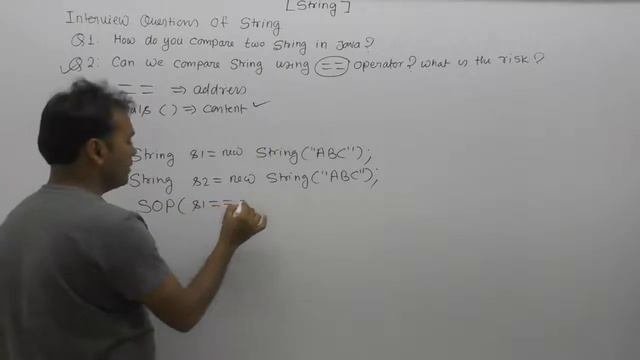 [String]
Interview Questions of String
Q1. How do you compare two String in Java?
Q2: Can we compare String using == operator? what is the risk?
== ⇒ address
() ⇒ content ✓
String s1 = new String("ABC");
String s2 = new String("ABC");
SOP( s1 ==